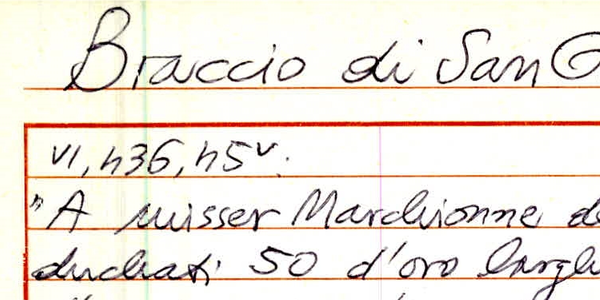 Braccio di San G
VI, n36, n5v.
"A misser Marchionne de
duchati 50 d'oro largh